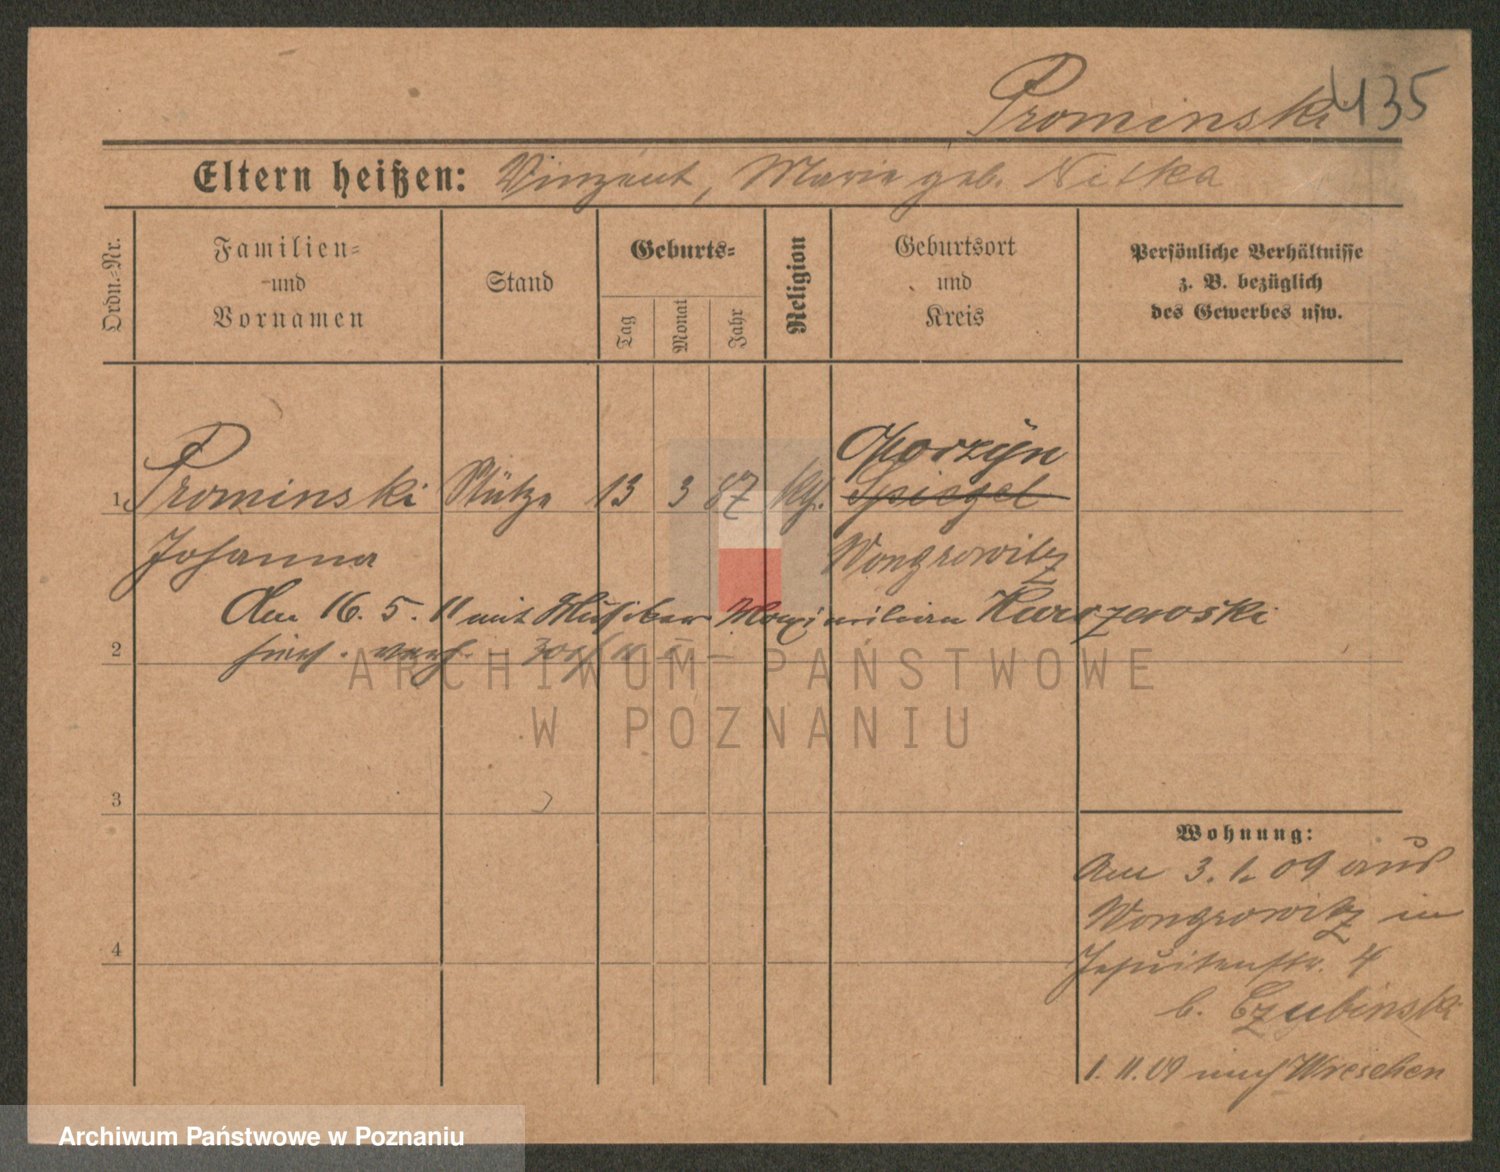 Prominski 435
Eltern heißen: Vinzent, Marie geb. Nitka
Ordn.-Nr.
Familien-
und
Vornamen
Stand
Geburts-
Tag
Monat
Jahr
Religion
Geburtsort
und
Kreis
Persönliche Verhältnisse
z. B. bezüglich
des Gewerbes usw.
Gorzyn
1. Prominski Stütze 13 3 87 kth. Spiegel
Johanna Wongrowitz
Am 16. 5. 11 mit Musiker Maximilian Kurszewski
2 hier verh.
3
4
Wohnung:
Am 3. 1. 09 aus
Wongrowitz in
Jesuitenstr. 4
b. Czubinski
1. 11. 09 nach Wreschen
ARCHIWUM PAŃSTWOWE
W POZNANIU
Archiwum Państwowe w Poznaniu